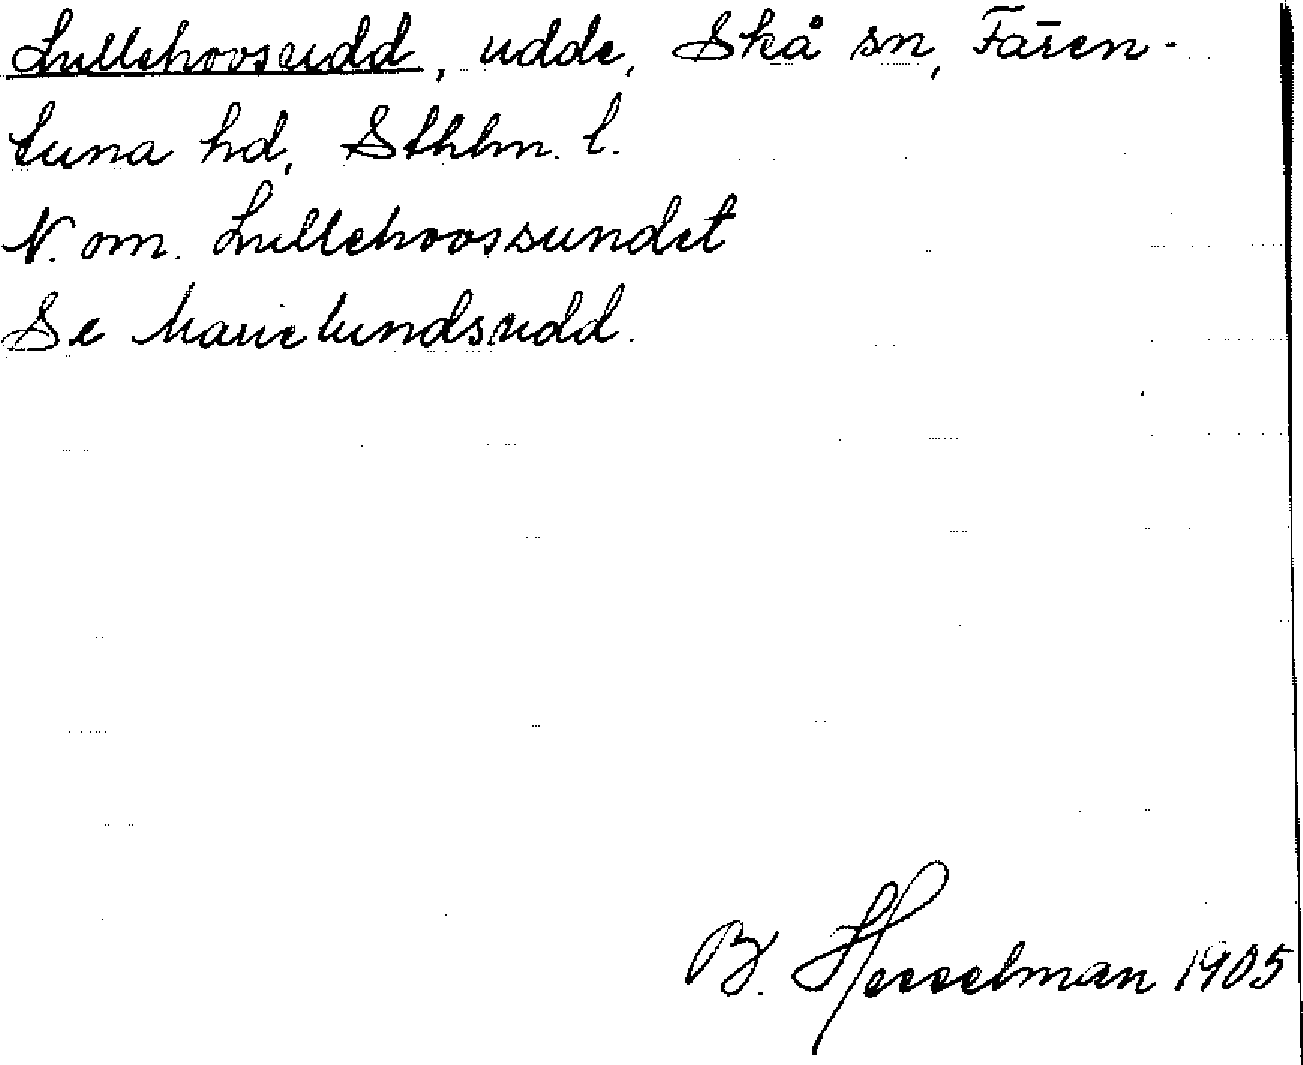 Lullehovsudd, udde, Skå sn, Fären-
tuna hd, Sthlm. l.
N. om. Lullehovssundet
Se Marielundsudd.
B. Hesselman 1905